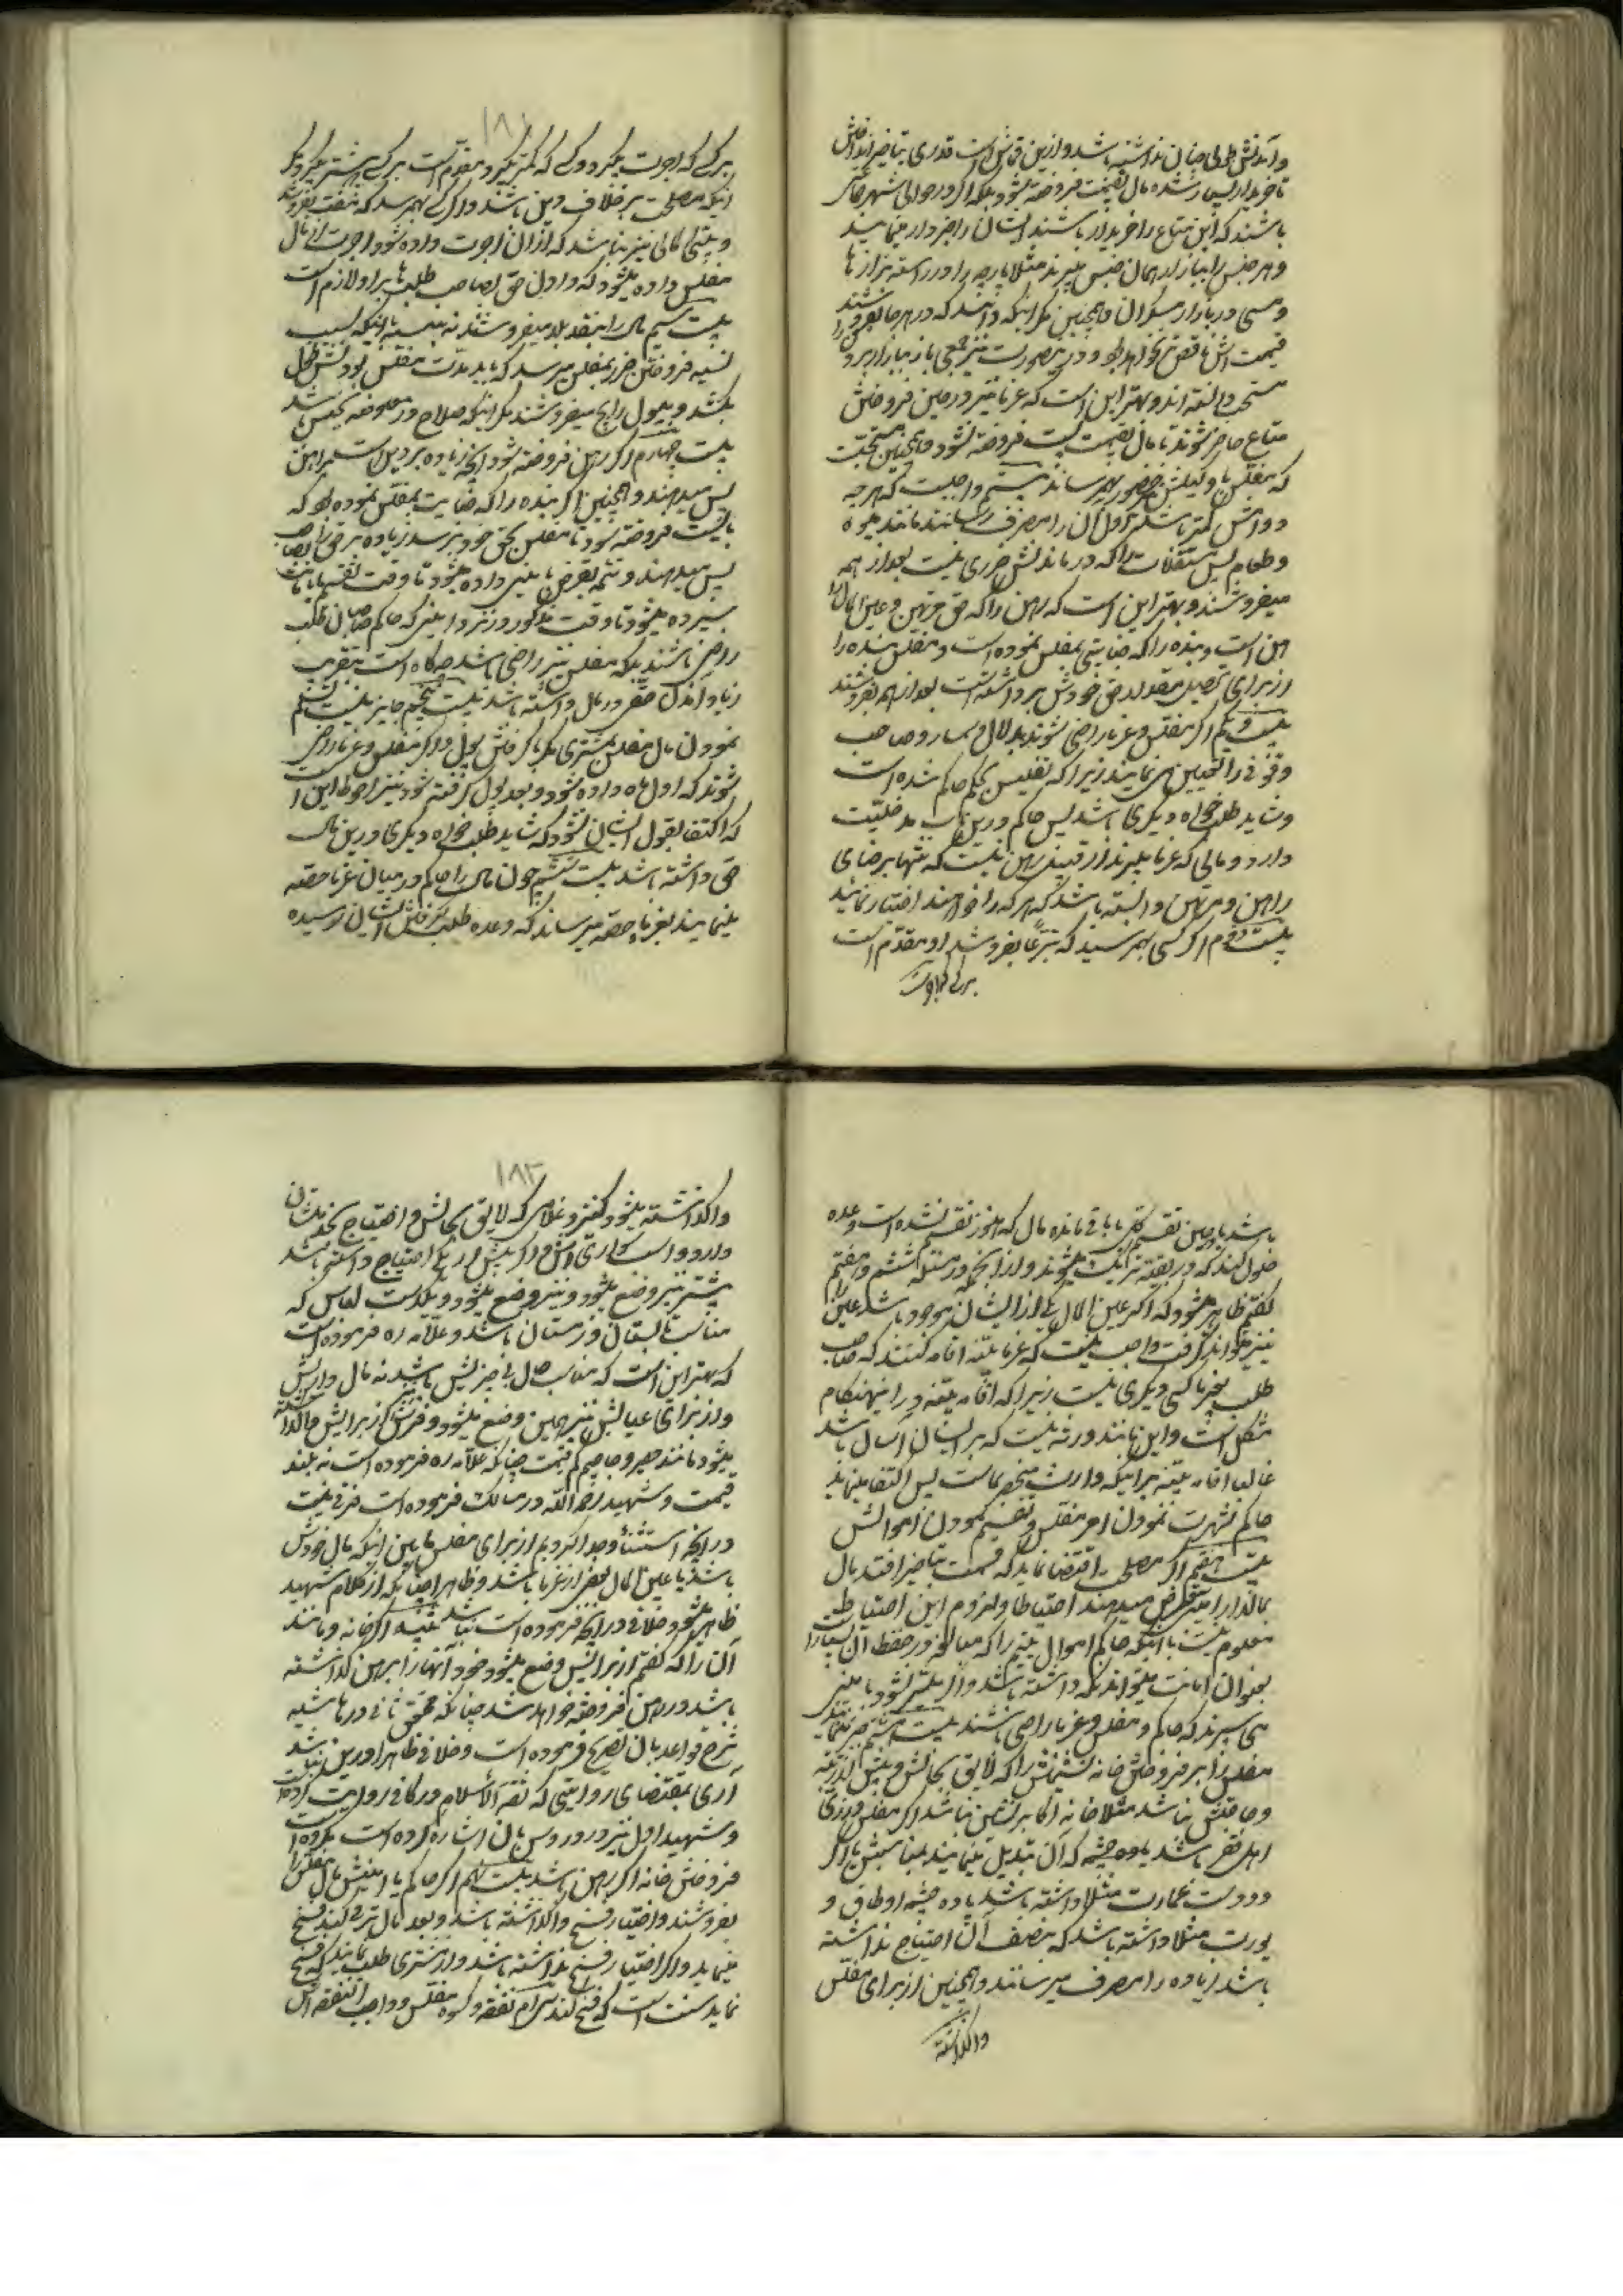 و آمدنش طولی چنان نداشته باشد و ازین قماش است قدری بتاخیر اندازندش
تا خریدار بسیار شده مال بقیمت فروخته شود بلکه اگر در حوالی شهر جماعتی
باشند که این متاع را خریدار باشند ایشان را خبردار مینمایند
و هر جنس را ببازار همان جنس میبرند مثلا پارچه را در راسته بزازها
و مسی در بازار مسگران و همچنین مگر اینکه دانند که در هر جا بفروشند
قیمت اش ناقص نخواهد بود و درینصورت نیز جمعی باز ببازار بردن را
مستحب دانسته اند و بهتر این است که غرما نیز در حین فروختن
متاع حاضر شوند تا مال بقیمت پست فروخته نشود و همچنین مستحبّ است
که مفلس یا وکیلش حضور بهم رساند بیستم واجبست که هر چه
دوامش کمتر باشد اول آن را بمصرف رسانند مانند میوه
و طعام پس مستقلات را که در ماندنش ضرری نیست بعد از همه
میفروشند و بهتر این است که رهن را که حق مرتهن و عین المال
رهن است و بنده را که جنایتی بمفلس نموده است و مفلس بنده را
از برای تحصیل مقدار حق خودش برداشته است بعد از همه بفروشند
بیست و یکم اگر مفلس و غرما راضی شوند بدلال و سمسار و صاحب
وقوفی را تعیین می نمایند زیرا که تفلیس بحکم حاکم شده است
و شاید طلبخواه دیگری باشد پس حاکم درین باب مدخلیّت
دارد و مالی که غرما میبرند از قبیل رهن نیست که تنها برضای
راهن و مرتهن وابسته باشد که هر که را خواهند اختیار نمایند
بیست و دوم اگر کسی بهم رسید که تبرّعا بفروشد او مقدّم است
بر کسی که اجرت
۱۸۱
بر کسی که اجرت میگیرد و کسی که کمتر میگیرد مقدّم است بر کسی که بیشتر میگیرد مگر
اینکه مصلحت برخلاف این باشد و اگر کسی بهم رسد که مفت بفروشد
و بیت المالی نیز نباشد که از آن اجرت داده شود اجرت از مال
مفلس داده میشود که ادای حق بصاحب طلبها بر او لازم است
بیست سیم مال را بنقد بلد میفروشند نه بنسیه با اینکه بسبب
نسیه فروختن ضرر بمفلس میرسد که باید مدت مفلس بودنش طول
بکشد و بپول رایج میفروشند مگر اینکه صلاح در معاوضه بجنس باشد
بیست چهارم اگر رهن فروخته شود آنچه زیاده بر دین است براهن
پس میدهند و همچنین اگر بنده را که جنایت بمفلس نموده بود که
بایست فروخته شود تا مفلس بحق خود برسد زیاده بر حق را بصاحب
پس میدهند و تتمه بقرض بامینی داده میشود تا وقت تقسیم یا بامانت
سپرده میشود تا وقت مذکور در نزد امینی که حاکم و صاحبان طلب
راضی باشند بلکه مفلس نیز راضی باشد هرگاه است بتقریب
زیاد آمدن حقی در مال داشته باشد بیست پنجم جایز نیست تسلیم
نمودن مال مفلس بمشتری مگر با گرفتن پول و اگر مفلس و غرما راضی
شوند که اول داده شود و بعد پول گرفته شود نیز احوط این است
که اکتفا بقول ایشان نشود که شاید طلبخواه دیگری درین مال
حقی داشته باشد بیست ششم چون مال را حاکم در میان غرما حصه
مینمایند بغرما حصه میرساند که وعده طلب ایشان رسیده
باشد یا در حین تقسیم یا باقی مانده مال که هنوز تقسیم نشده است وعده
حلول کند که در بقیه شریک میشوند و از آنچه در مسئله ششم و هفتم
گفتیم ظاهر میشود که اگر عین المال یکی از ایشان موجود باشد عین را
نیز میتواند گرفت واجب نیست که غرما بیّنه اقامه کنند که صاحب
طلب بجز ما کسی دیگری نیست زیرا که اقامه بیّنه در اینهنگام
مشکل است و این مانند ورثه نیست که بر ایشان آسان باشد
غالبا اقامه بیّنه بر اینکه وارث منحصر بماست پس اکتفا مینماید
حاکم بشهرت نمودن امر مفلس و تقسیم نمودن اموالش
بیست هفتم اگر مصلحت اقتضا نماید که قسمت بتاخیر افتد مال
بمالدارا بقرض میدهند احتیاطا و لزوم این احتیاط
معلوم نیست با اینکه حاکم اموال یتیم را که مبالغه در حفظ آن بسیار است
بعنوان امانت میتواند نگه داشته باشد و اگر میسّر نشود بامینی
می سپرند که حاکم و مفلس و غرما راضی باشند بیست هشتم جبر نمینمایند
مفلس را بر فروختن خانه نشیمنش را که لایق بحالش و بیش از قدر
و حاجتش نباشد مثلا خانه اکابر نشین نباشد اگر مفلس از زی
اهل فقر باشد یا ده چشمه که آن تبدیل مینمایند بمناسبش یا اگر
دو دست عمارت مثلا داشته باشد یا ده چشمه اوطاق و
یورت مثلا داشته باشد که بنصف آن احتیاج نداشته
باشد زیاده را بمصرف میرسانند و همچنین از برای مفلس
واگذاشته
۱۸۲
واگذاشته میشود کنیز و غلامی که لایق بحالش و احتیاج بخدمتشان
دارد و اسب سواری اش و اگر بیش از یکی احتیاج داشته باشد
بیشتر نیز وضع میشود و نیز وضع میشود و یکدست لباس که
مناسب تابستان و زمستان باشد و علّامه ره فرموده است
که بهتر این است که مناسب حال بی چیزیش باشد نه مال داریش
و از برای عیالش نیز همین وضع میشود و فرش نیز از برایش واگذاشته
میشود مانند حصیر و جاجیم کم قیمت چنانکه علّامه ره فرموده است نه بلند
قیمت و شهید رحمه اللّه در مسالک فرموده است فرقی نیست
در آنچه استثناء و جدا کردیم از برای مفلس مابین اینکه مال خودش
باشد یا عین المال بعضی از غرما باشد و ظاهرا چنانکه از کلام شهید
ظاهر میشود خلافی در آنچه فرموده است نباشد تنبیه اگر خانه و مانند
آن را که گفتیم از برایش وضع میشود خود آنها را برهن گذاشته
باشد در رهن فروخته خواهد شد چنانکه محقق ثانی در حاشیه
شرح قواعد بآن تصریح فرموده است و خلافی ظاهرا درین نباشد
آری بمقتضای روایتی که ثقة الاسلام در کافی روایت کرده است
و شهید اول نیز در دروس بآن اشاره کرده است مکروه است
فروختن خانه اگر رهن باشد بیست نهم اگر حاکم یا امینش مال مفلس را
بفروشند و اختیار فسخ واگذاشته باشد و بعد مال ترقی کند فسخ
مینماید و اگر اختیار فسخ نداشته باشد و از مشتری طلب نمایند که فسخ
نماید سنت است که فسخ کند سی‌ام نفقه و کسوه مفلس و واجب النفقه اش